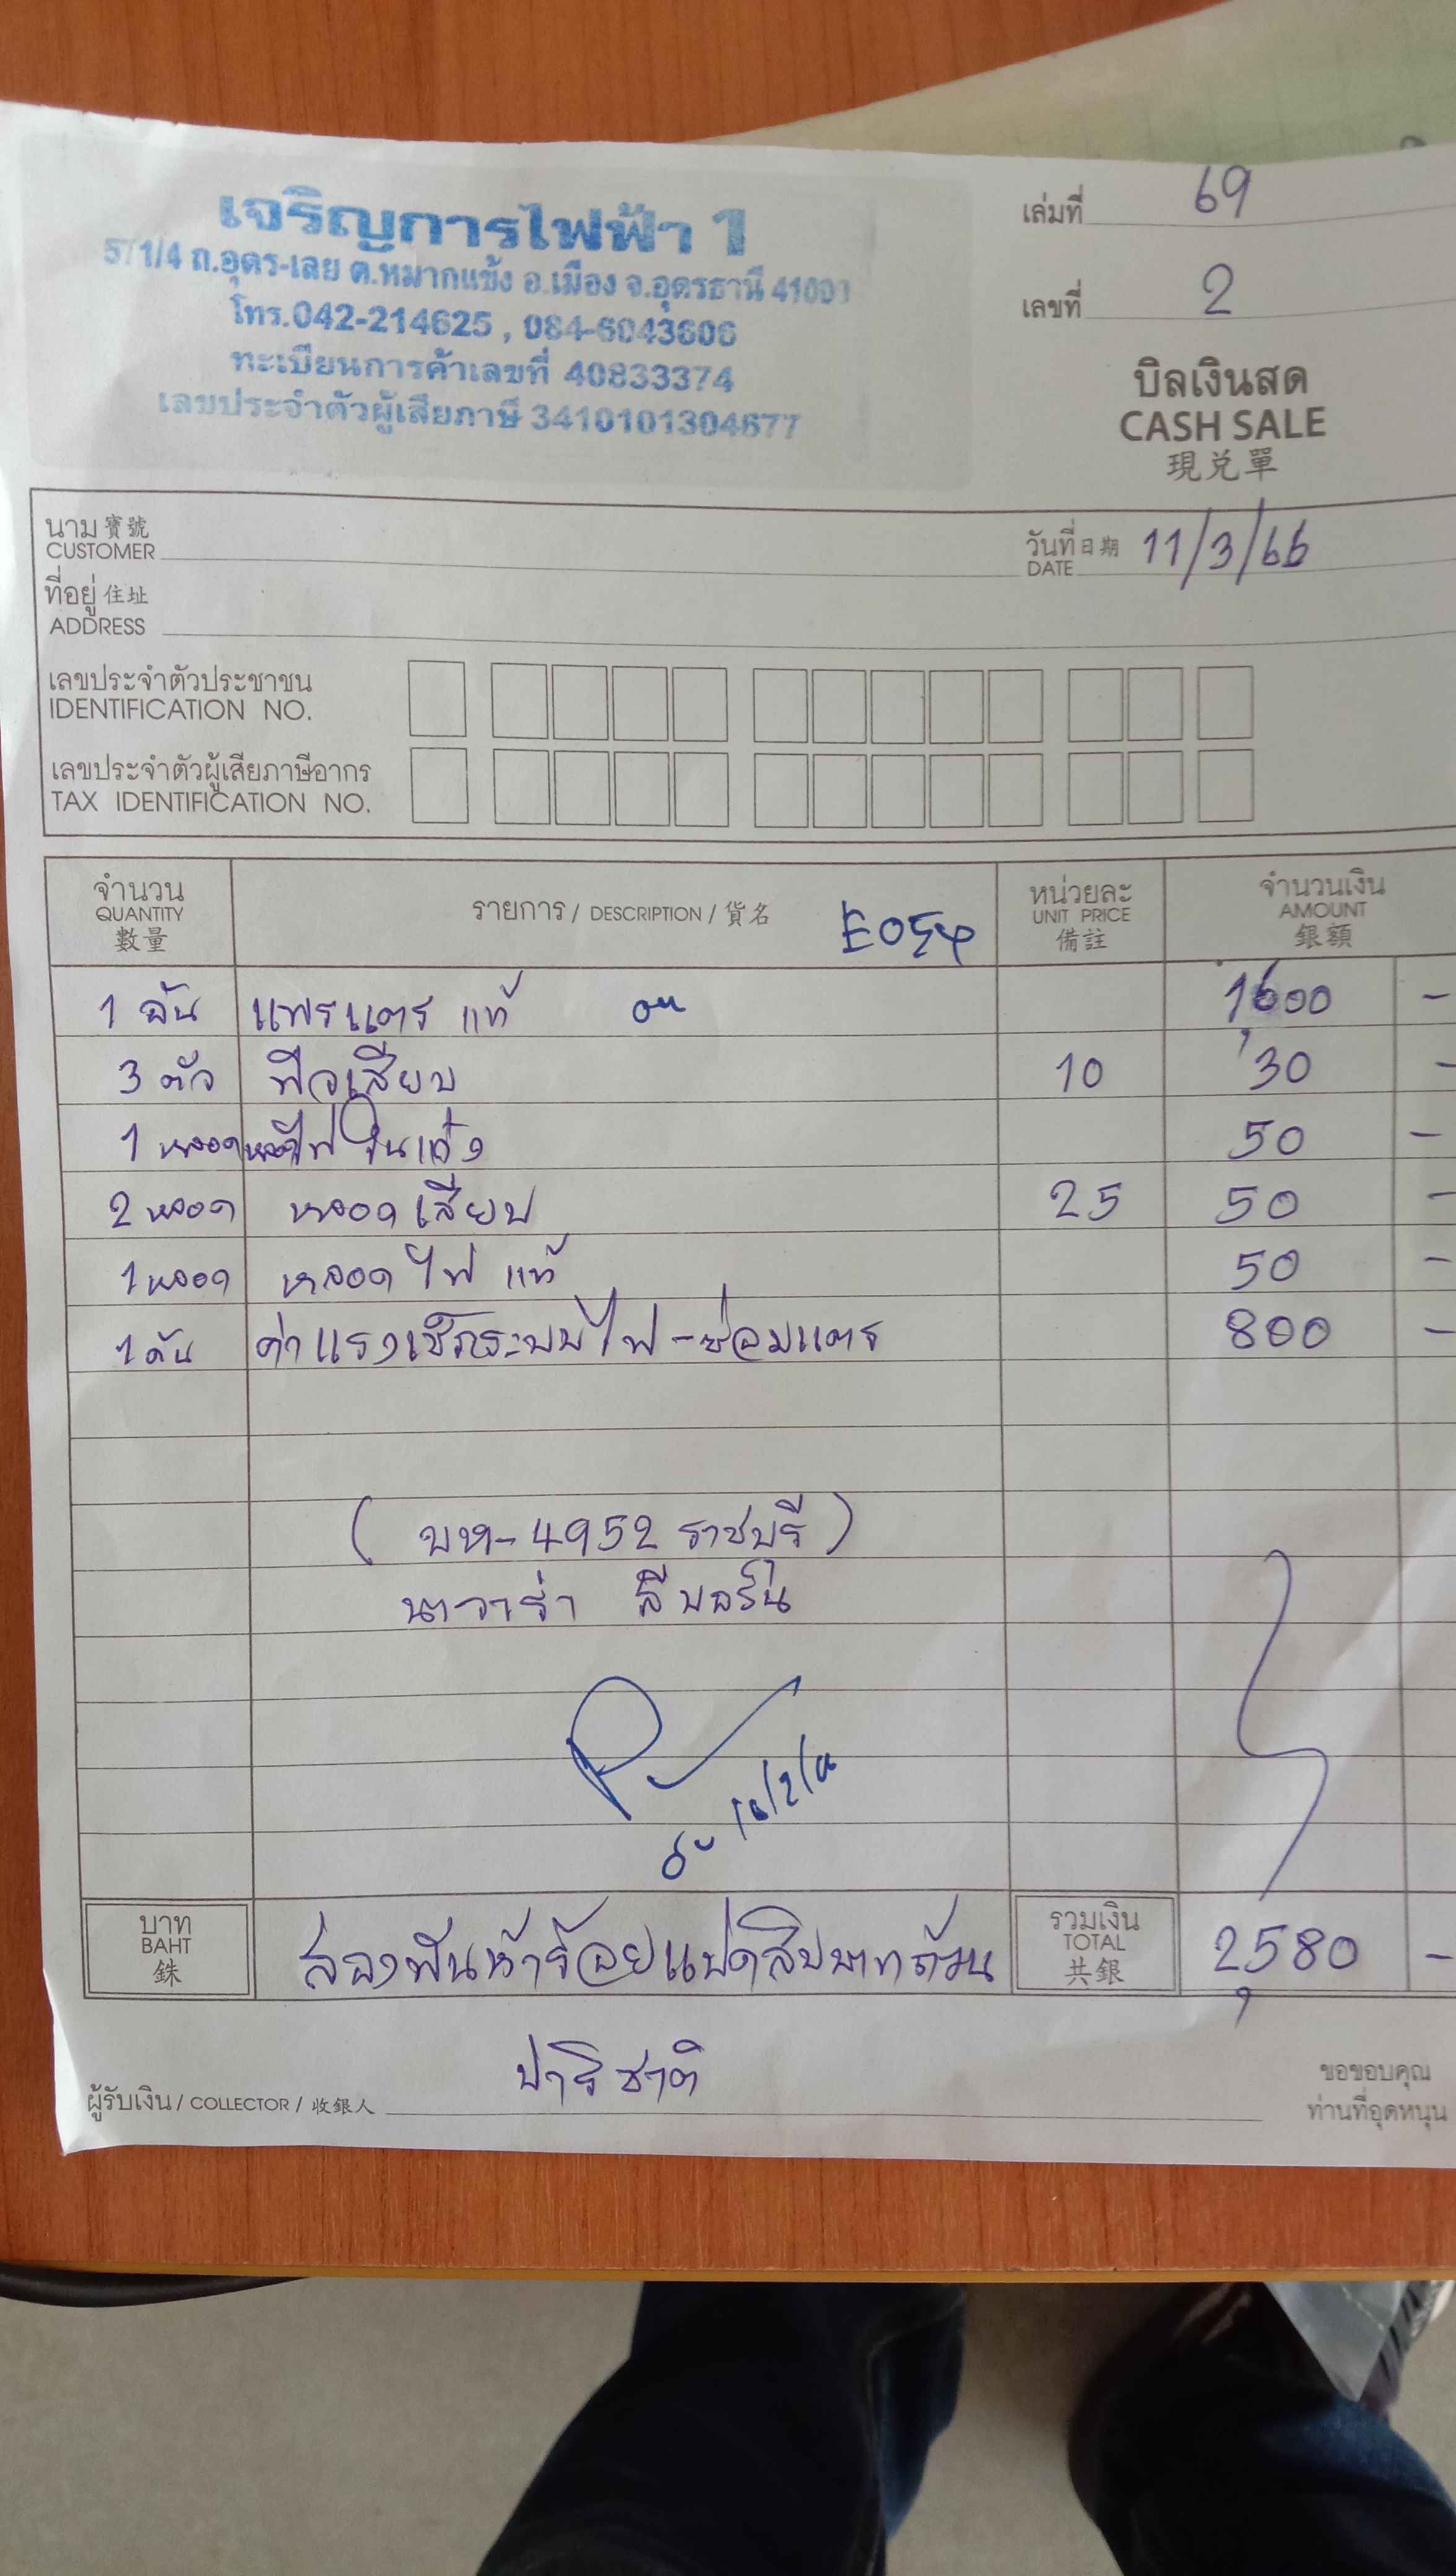 เล่มที่ 69
เจริญการไฟฟ้า 1
571/4 ถ.อุดร-เลย ต.หมากแข้ง อ.เมือง จ.อุดรธานี 41000
เลขที่ 2
โทร.042-214625 , 084-6043606
ทะเบียนการค้าเลขที่ 40833374
เลขประจำตัวผู้เสียภาษี 3410101304677
บิลเงินสด
CASH SALE
現兌單
นาม 寶號
CUSTOMER
วันที่ 日期 11/3/66
DATE
ที่อยู่ 住址
ADDRESS
เลขประจำตัวประชาชน
IDENTIFICATION NO.
เลขประจำตัวผู้เสียภาษีอากร
TAX IDENTIFICATION NO.
จำนวน รายการ / DESCRIPTION / 貨名 หน่วยละ จำนวนเงิน
QUANTITY UNIT PRICE AMOUNT
數量 備註 銀額
1 อัน แพรแตร แท้ 1600 -
3 ตัว ฟิวเสียบ 10 30 -
1 หลอด หลอดไฟในเก๋ง 50 -
2 หลอด หลอดเสียบ 25 50 -
1 หลอด หลอดไฟ แท้ 50 -
1 คัน ค่าแรงเช็กระบบไฟ - ซ่อมแตร 800 -
( บห - 4952 ราชบุรี )
นาวาร่า สีบอร์น
บาท สองพันห้าร้อยแปดสิบบาทถ้วน รวมเงิน 2,580 -
BAHT TOTAL
銖 共銀
ปาริชาติ
ผู้รับเงิน / COLLECTOR / 收銀人
ขอขอบคุณ
ท่านที่อุดหนุน